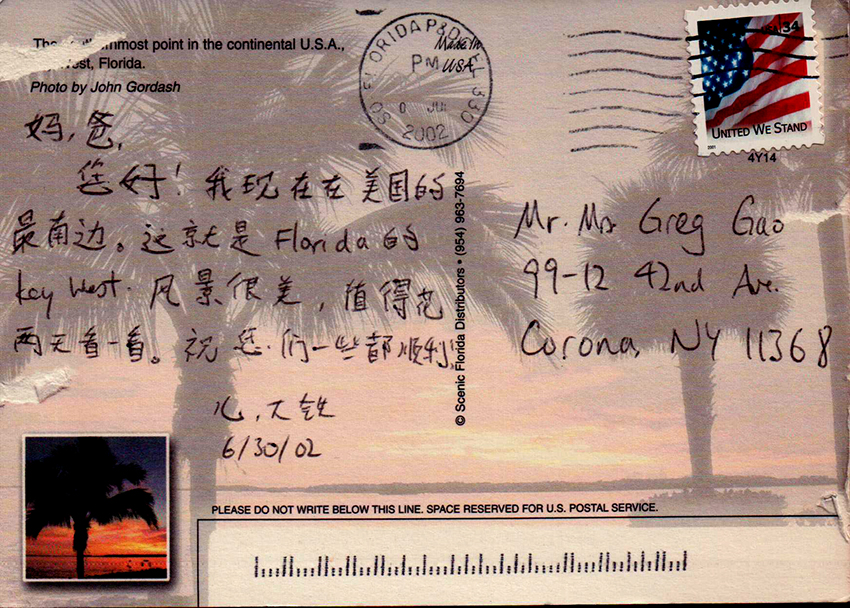 The mmost point in the continental U.S.A.,
West, Florida.
Photo by John Gordash
Made In
USA
SO FLORIDA P&DC FL 330
PM
JUL
2002
34
UNITED WE STAND
2001
4Y14
妈,爸,
您好!我现在在美国的
最南边。这就是Florida的
Key West. 风景很美,值得花
两天看一看。祝您们一些都顺利。
儿,大
6/30/02
© Scenic Florida Distributors • (954) 963-7694
Mr. Mrs Greg Gao
99-12 42nd Ave.
Corona, NY 11368
PLEASE DO NOT WRITE BELOW THIS LINE. SPACE RESERVED FOR U.S. POSTAL SERVICE.